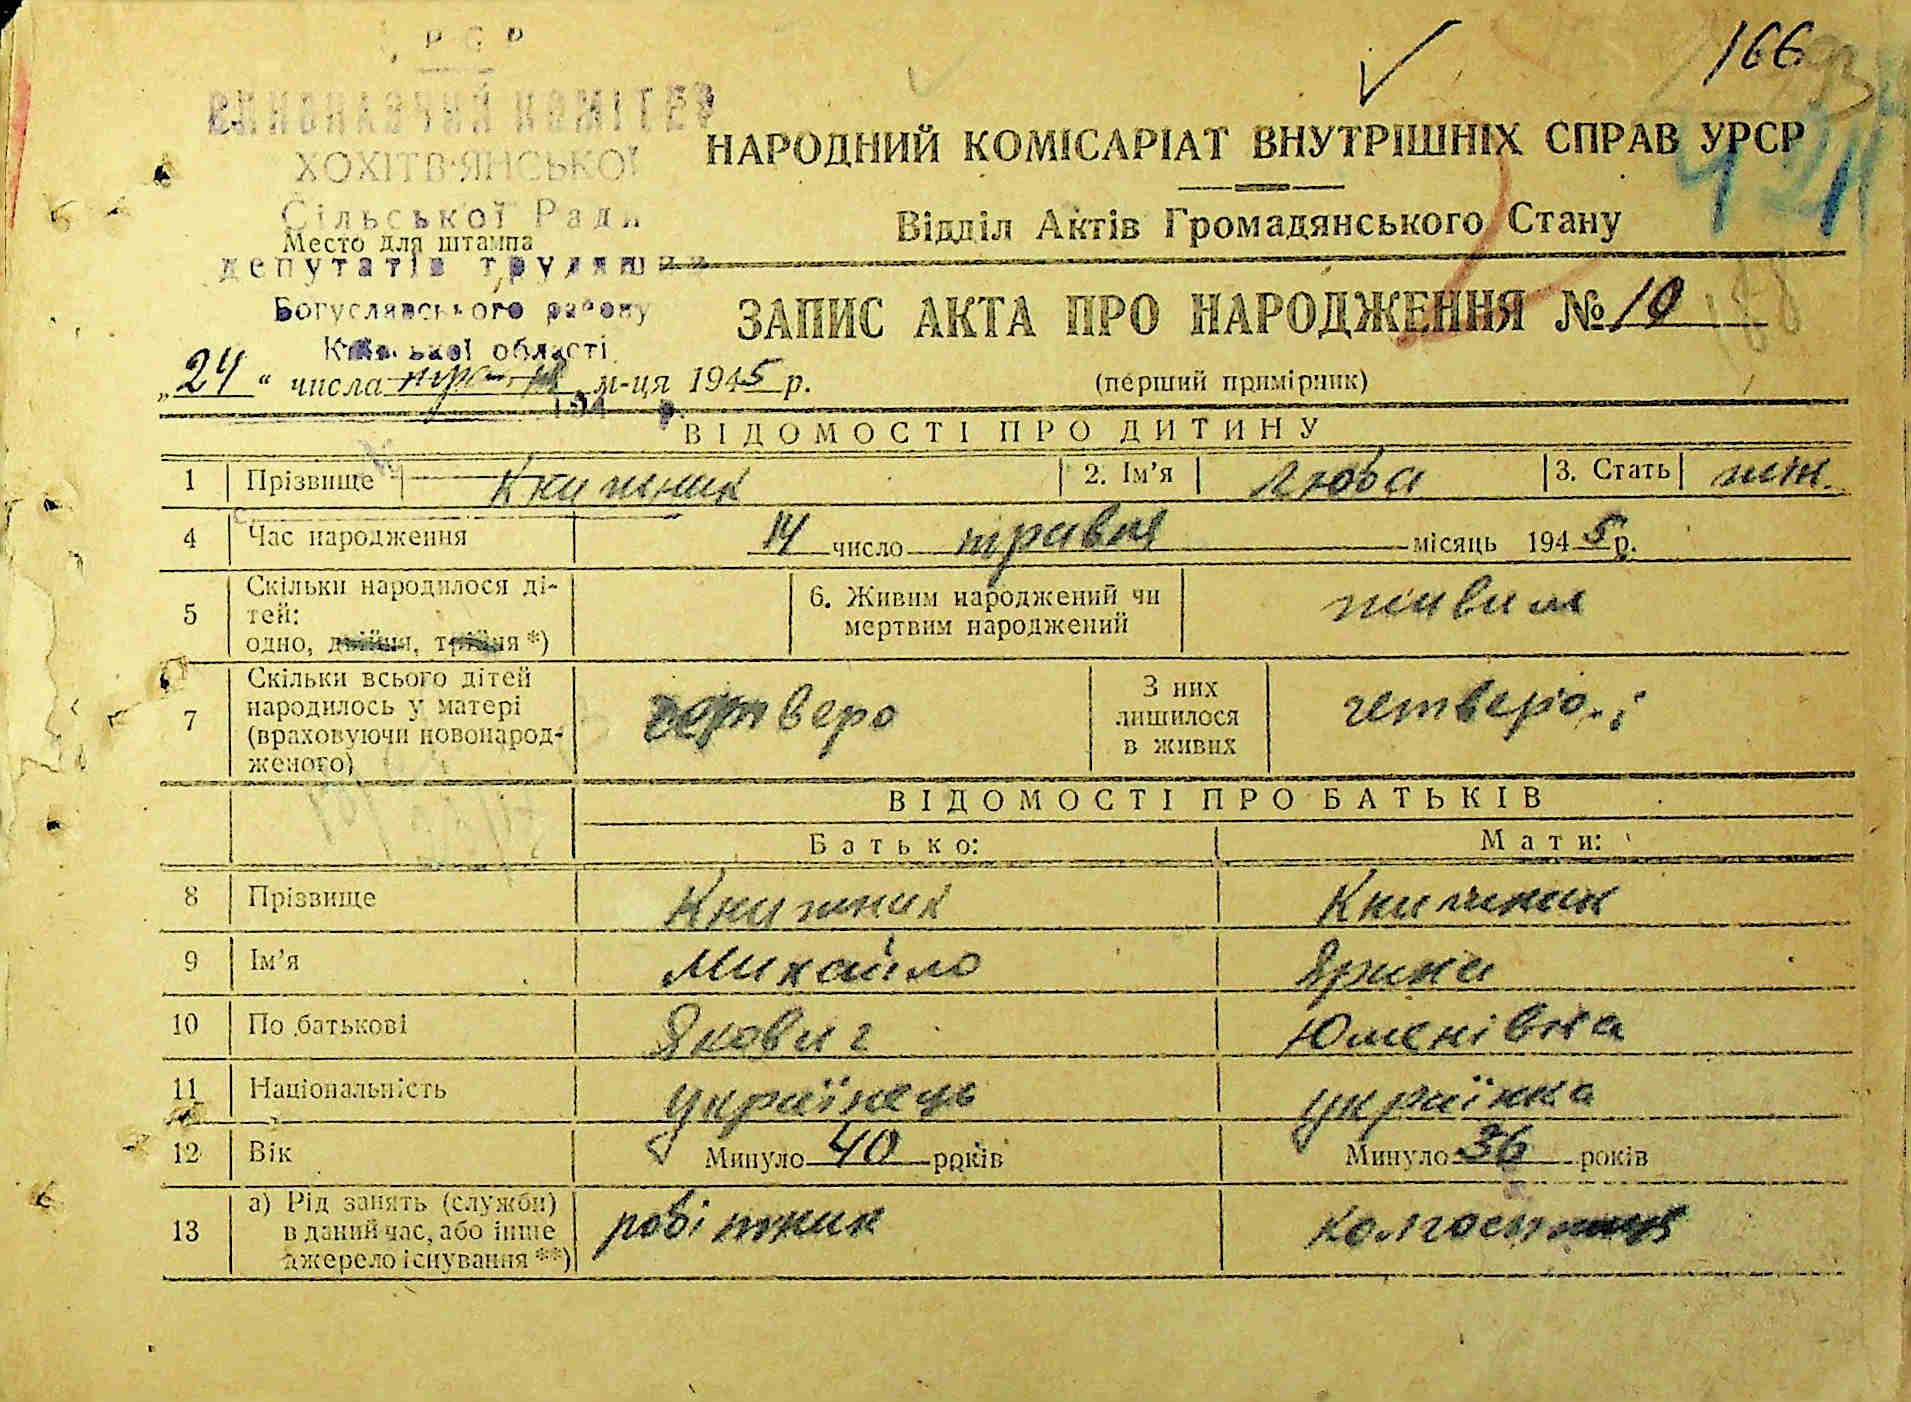 166
УРСР
ВИКОНАВЧИЙ КОМІТЕТ
ХОХІТВ'ЯНСЬКОЇ
Сільської Ради
Место для штампа
депутатів трудящих
Богуславського району
Київської області
194 р.
НАРОДНИЙ КОМІСАРІАТ ВНУТРІШНІХ СПРАВ УРСР
Відділ Актів Громадянського Стану
ЗАПИС АКТА ПРО НАРОДЖЕННЯ № 10
„24“ числа травня м-ця 1945 р.
(перший примірник)
ВІДОМОСТІ ПРО ДИТИНУ
1 Прізвище Книжник 2. Ім'я Люба 3. Стать жін.
4 Час народження 14 число травня місяць 1945 р.
5 Скільки народилося ді-
тей:
одно, двійня, трійня *)
6. Живим народжений чи
мертвим народжений
живим
7 Скільки всього дітей
народилось у матері
(враховуючи новонарод-
женого)
четверо
З них
лишилося
в живих
четверо
ВІДОМОСТІ ПРО БАТЬКІВ
Батько: Мати:
8 Прізвище Книжник Книжник
9 Ім'я Михайло Ярина
10 По батькові Якович Юменівна
11 Національність українець українка
12 Вік Минуло 40 років Минуло 36 років
13 а) Рід занять (служби)
в даний час, або інше
джерело існування **)
робітник